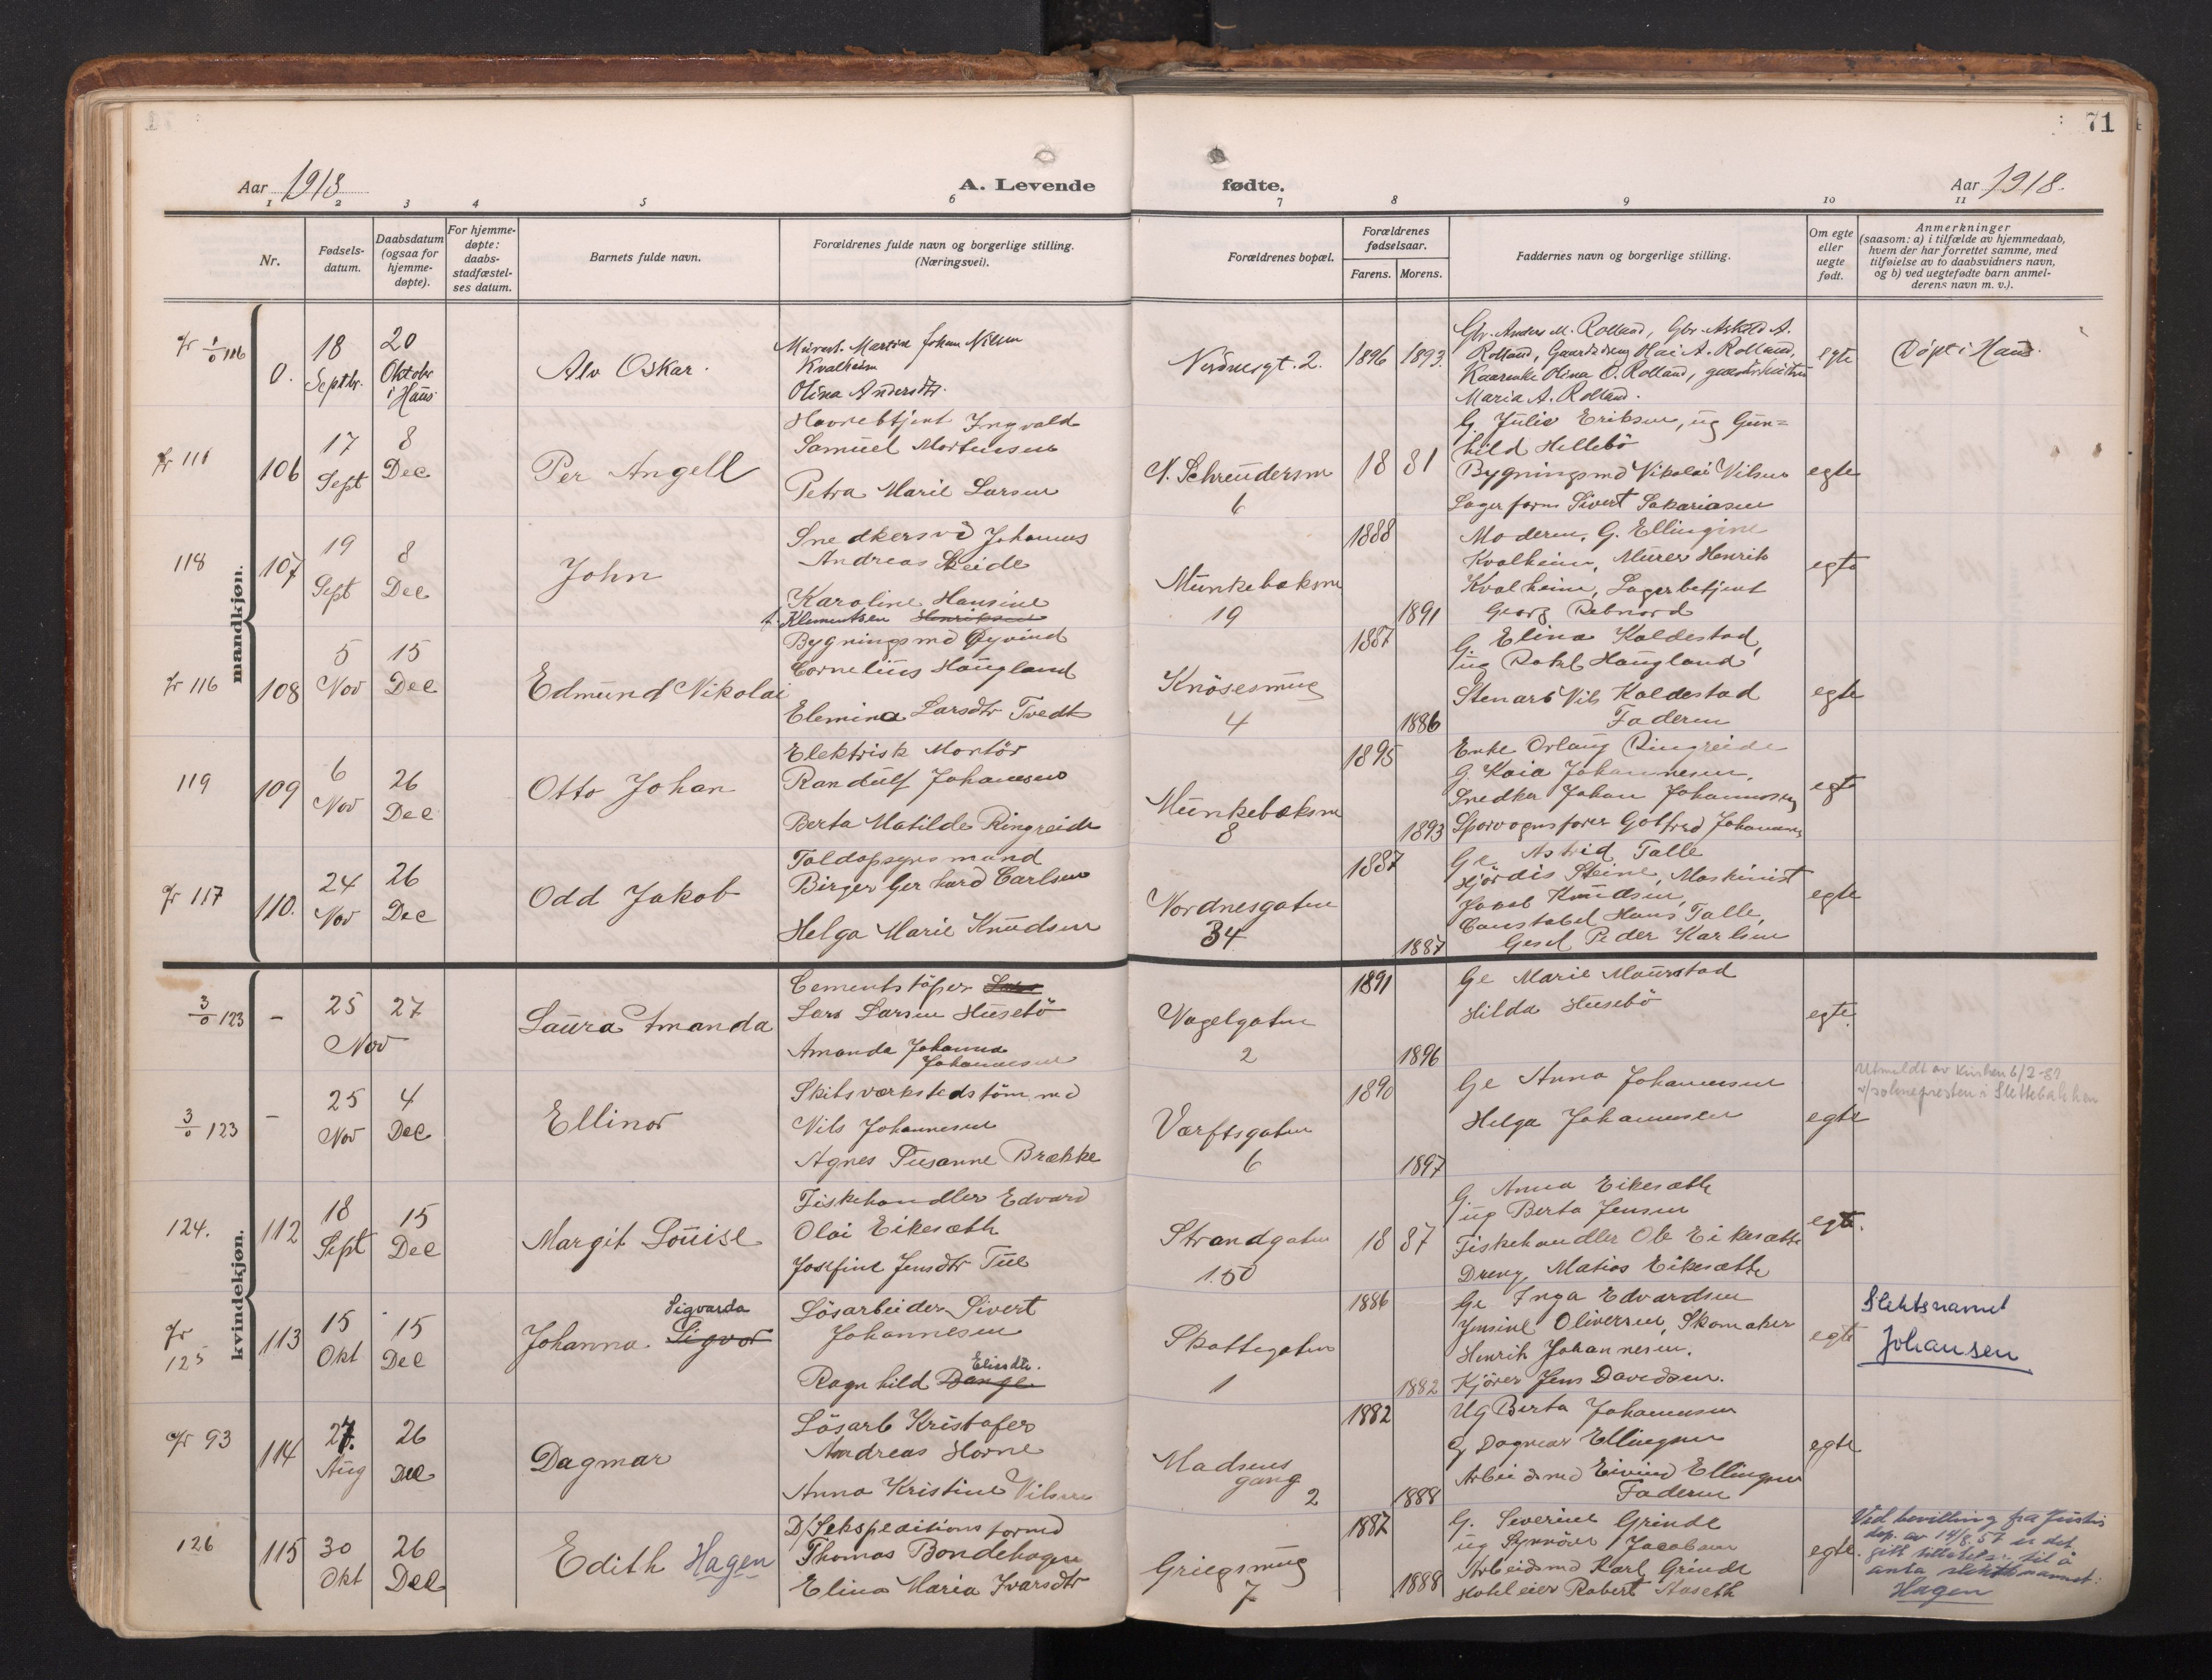 71
Aar 1918
A. Levende
fødte.
Aar 1918.
1 2 3 4 5 6 7 8 9 10 11
Nr.
Fødsels-
datum.
Daabsdatum
(ogsaa for
hjemme-
døpte).
For hjemme-
døpte:
daabs-
stadfæstel-
ses datum.
Barnets fulde navn.
Forældrenes fulde navn og borgerlige stilling.
(Næringsvei).
Forældrenes bopæl.
Forældrenes
fødselsaar.
Farens. Morens.
Faddernes navn og borgerlige stilling.
Om egte
eller
uegte
født.
Anmerkninger
(saasom: a) i tilfælde av hjemmedaab,
hvem der har forrettet samme, med
tilføielse av to daabsvidners navn,
og b) ved uegtefødte barn anmel-
derens navn m. v.).
mandkjøn.
0.
18
Septbr.
20
Oktobr
i Haus
Alv Oskar.
Murerst. Martin Johan Nilsen
Kvalheim
Olina Andersdtr.
Nordnesgt. 2.
1896 1893.
Gbr. Anders M. Rolland, Gbr. Askild A.
Rolland, Gaardsdreng Hai A. Rolland,
Olina O. Rolland,
Maria A. Rolland.
egte
Döpt i Haus.
106
17
Sept
8
Dec
Per Angell
Havnebtjent Ingvald
Samuel Mortensen
Petra Marie Larsen
N. Schreudersm
6
18 81
G. Julie Eriksen, ug Gun=
hild Hillebö
Bygningsmd Nikolai Nilsen
Lagerform Sivert Sakariasen
egte
118
107
19
Sept
8
Dec
John
Snedkersvd Johannes
Andreas Leide
Karoline Hansine
f. Klementsen Henriksen
Munkebeksm
19
1888
1891
Moderen, G. Ellingine
Kvalheim, Murer Henrik
Kvalheim, Lagerbetjent
Georg Rebnord
egte
108
5
Nov
15
Dec
Edmund Nikolai
Bygningsmd Øyvind
Cornelius Haugland
Elemina Larsdtr Tvedt
Knösesmug
4
1887
1886
G. Elina Koldestad,
ug Rakel Haugland
Stenarb Nils Koldestad
Faderen
egte
119
109
6
Nov
26
Dec
Otto Johan
Elektrisk Montör
Randulf Johannesen
Berta Matilde Ringreide
Munkebeksm
8
1895
1893
Enke Orlaug Ringreide
G. Kaia Johannesen,
Snedker Johan Johannesen
Sporvognsförer Gotfred Johannes
egt
117
110.
24
Nov
26
Dec
Odd Jakob
Toldopsynsmand
Birger Gerhard Carlsen
Helga Marie Knudsen
Nordnesgaten
34
1887
1887
Ge Astrid Talle
Hjördis Steine, Maskinist
Jakob Knudsen,
Constabel Hans Talle,
Gesel Peder Karlsen
egte
kvindekjøn.
3/0 123
-
25 27
Nov
Laura Amanda
Cementstöper
Lars Larsen Husebö
Amanda Johanna
Johannesen
Vagelgaten
2
1891
1896
Ge Marie Maurstad
Hilda Husebö
egte.
3/0 123
-
25
Nov
4
Dec
Ellinor
Skibsværkstedstöm.md
Nils Johannesen
Agnes Susanne Brække
Værftsgaten
6
1890
1897
Ge Anna Johannesen
Helga Johannesen
egte
Utmeldt av kirken 6/2-89
v/soknepresten i Slettebakken
124.
112
18
Sept
15
Dec
Margit Louise
Fiskehandler Edvard
Olai Eikesæth
Josefine Jensdtr Tue
Strandgaten
150
18 87
G. Anna Eikesæth
ug Berta Jensen
Fiskehandler Ole Eikesæth
Dreng Matias Eikesæth
egte.
125
113
15
Okt
15
Dec
Sigvarda
Johanna Sigvor
Lösarbeider Sivert
Johannesen
Elisdtr.
Ragnhild
Skottegaten
1
1886
1882
Ge Inga Edvardsen
Jensine Oliversen, Skomaker
Henrik Johannesen.
Kjörer Jens Davidsen.
egte
Slektsnamet
Johansen
93
114
27.
Aug
26
Dec
Dagmar
Lösarb Kristofer
Andreas Horne
Anna Kristine Nilsen
Madsens
gang
2
1882
1888
Ug Berta Johannesen
G Dagmar Ellingsen
Arbeidsmd Eivind Ellingsen
Faderen
egte
126
115
30
Okt
26
Dec
Edith Hagen
D/Sekspeditionsformd
Thomas Bondehagen
Elina Maria Ivarsdtr
Griegsmug
7
1887
1888
G. Severine Grinde
ug Synnöve Jacobsen
Arbeidsmd Karl Grinde
Hoteleier Robert Aaseth
egte.
Ved bevilling fra Justis
dep. av 14/8.57 er det
gitt tillatelse til å
anta slektsnamnet:
Hagen